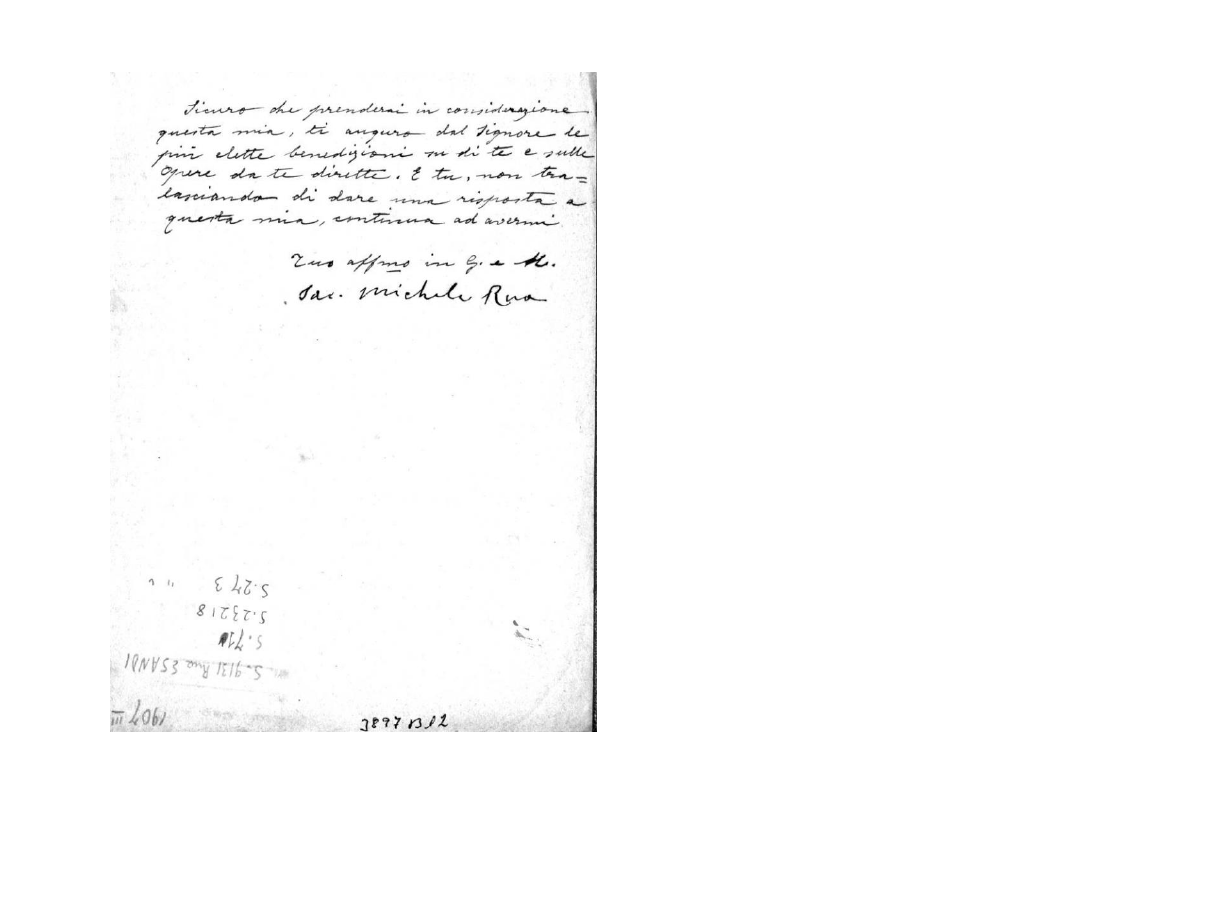 Sicuro che prenderai in considerazione
questa mia, ti auguro dal Signore le
più elette benedizioni su di te e sulle
Opere da te dirette. E tu, non tra=
lasciando di dare una risposta a
questa mia, continua ad avermi
Tuo affmo in G. e M.
Sac. Michele Rua
S.273
S.23218
S.9131 Rua ESANDI
1907 III
3897 B12